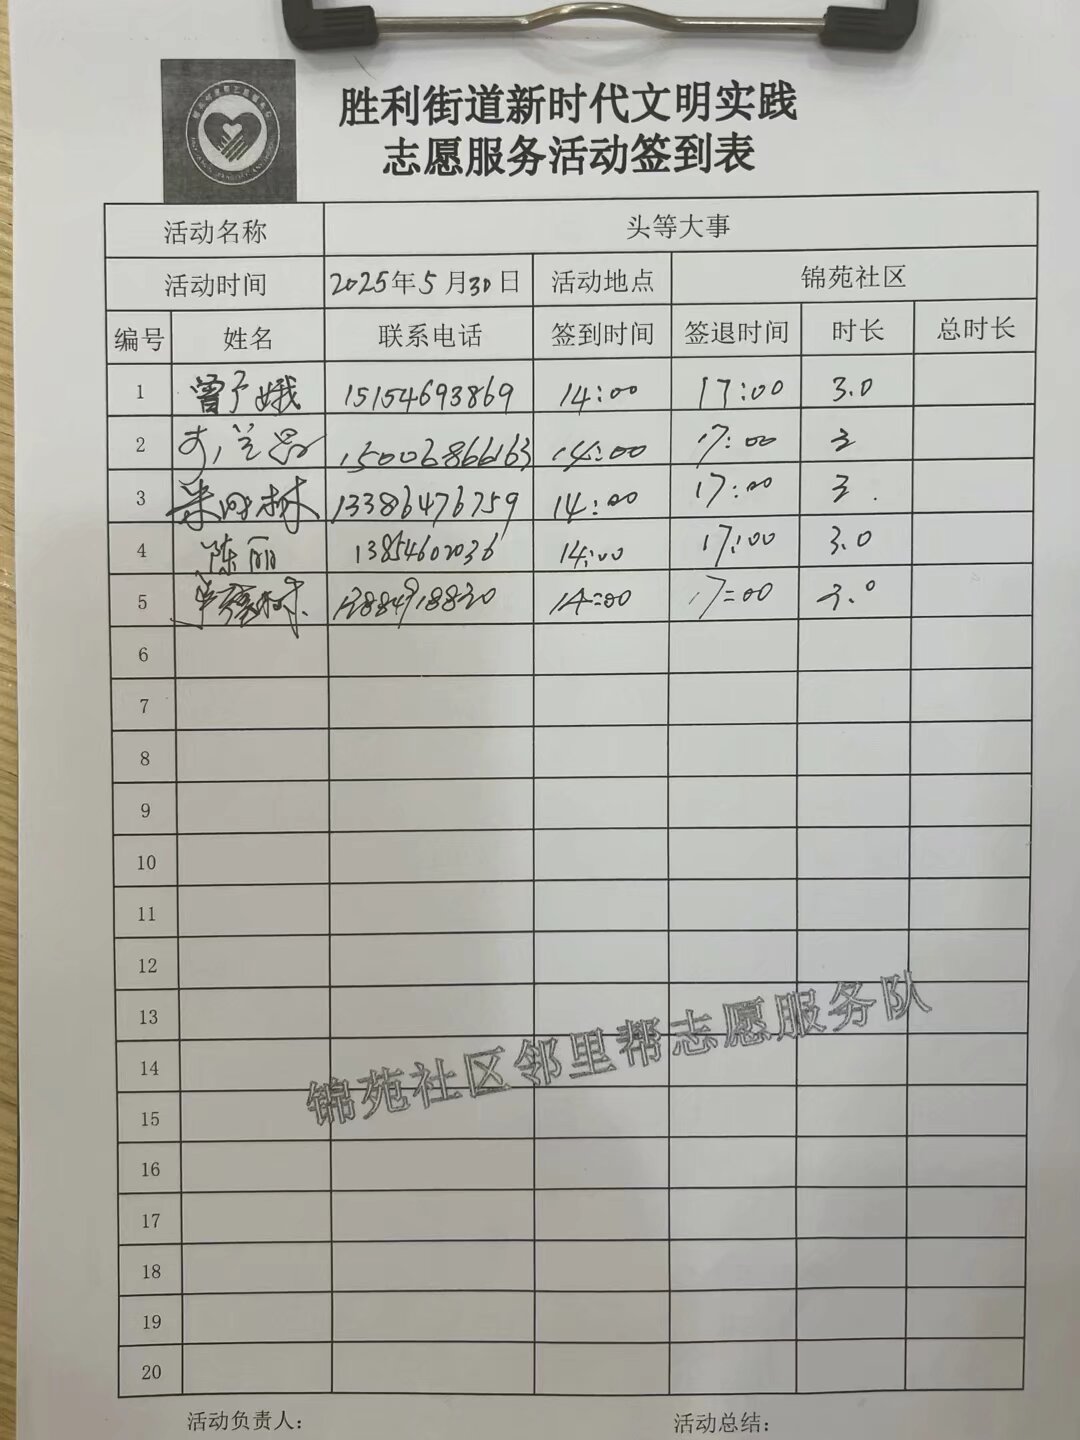 胜利街道新时代文明实践
志愿服务活动签到表
活动名称 头等大事
活动时间 2025年5月30日 活动地点 锦苑社区
编号 姓名 联系电话 签到时间 签退时间 时长 总时长
1 曾予娥 15154693869 14:00 17:00 3.0
2 15006866163 14:00 17:00 3
3 13386476759 14:00 17:00 3.
4 陈丽 13854602036 14:00 17:00 3.0
5 14:00 17:00 3.0
6
7
8
9
10
11
12
13
14
15
16
17
18
19
20
锦苑社区邻里帮志愿服务队
活动负责人:
活动总结: